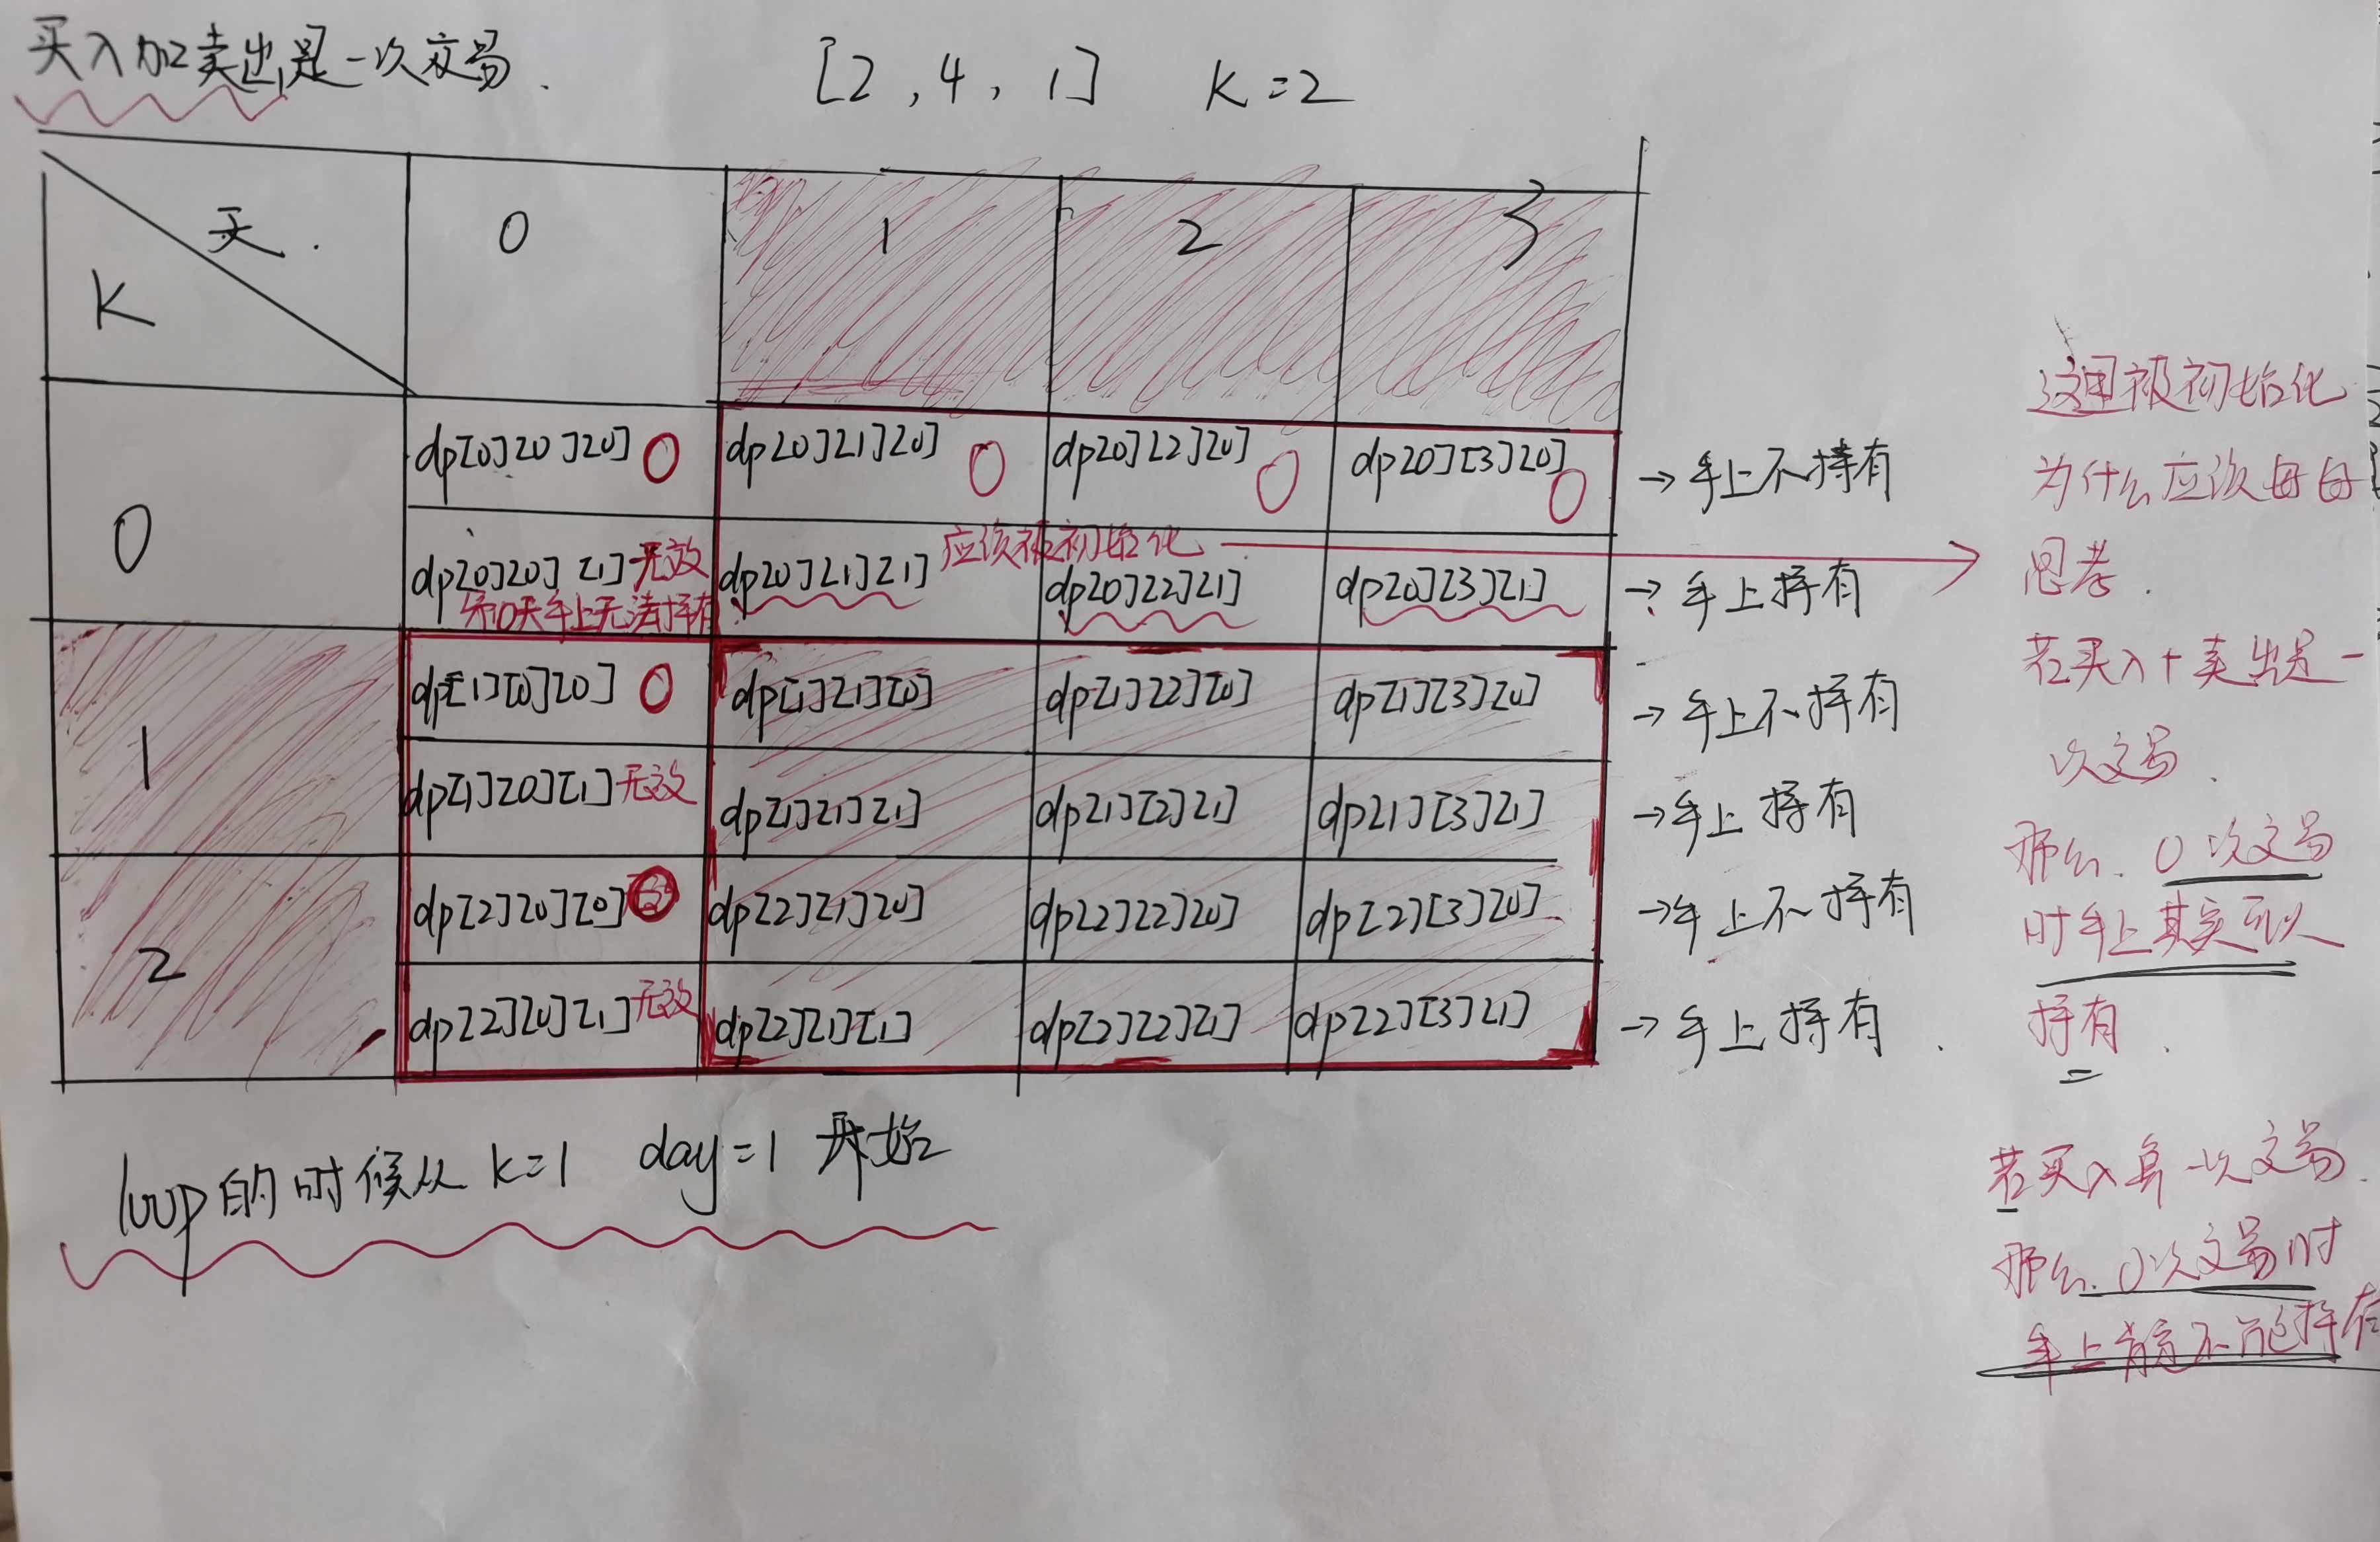 买入加卖出是一次交易.
[2,4,1] K=2
天.
K
0 1 2 3
0
dp[0][0][0] 0 dp[0][1][0] 0 dp[0][2][0] 0 dp[0][3][0] 0 → 手上不持有
dp[0][0][1] 无效 dp[0][1][1] 应该被初始化 dp[0][2][1] dp[0][3][1] → 手上持有
第0天手上无法持有
1
dp[1][0][0] 0 dp[1][1][0] dp[1][2][0] dp[1][3][0] → 手上不持有
dp[1][0][1] 无效 dp[1][1][1] dp[1][2][1] dp[1][3][1] → 手上持有
2
dp[2][0][0] dp[2][1][0] dp[2][2][0] dp[2][3][0] → 手上不持有
dp[2][0][1] 无效 dp[2][1][1] dp[2][2][1] dp[2][3][1] → 手上持有.
loop的时候从 k=1 day=1 开始
这里被初始化
为什么应该
思考.
若买入+卖出是一
次交易.
那么. 0次交易
时手上其实可以
持有.
若买入算一次交易.
那么. 0次交易时
手上肯定不能持有